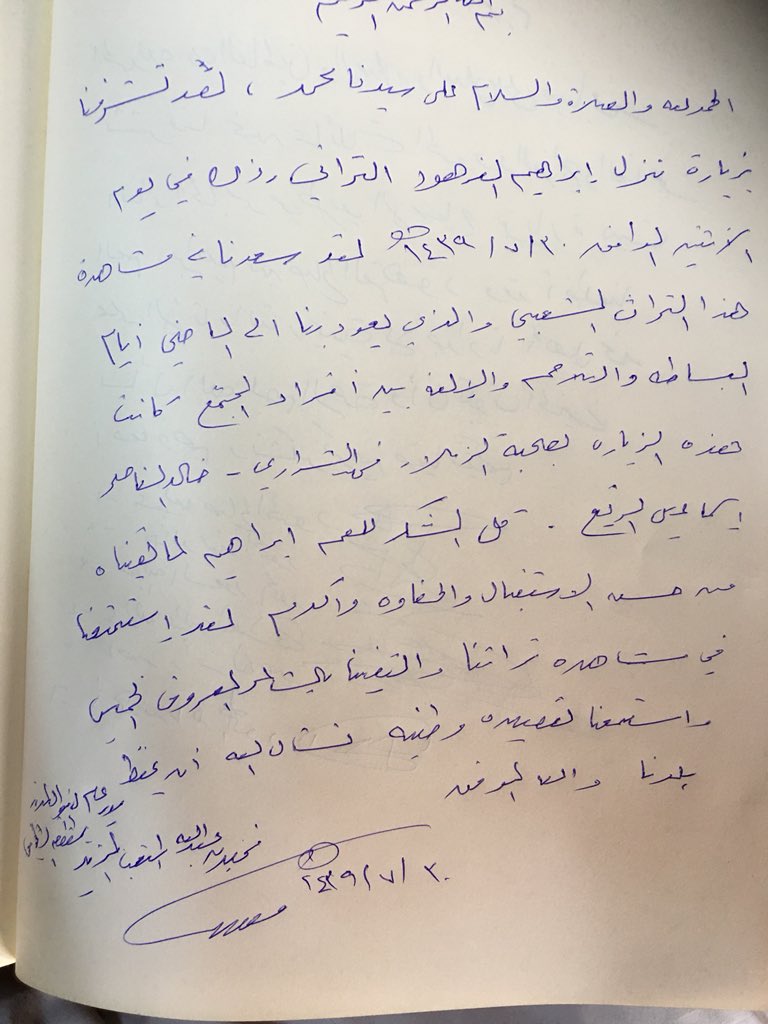 بسم الله الرحمن الرحيم
الحمد لله والصلاة والسلام على سيدنا محمد ، لقد تشرفنا
بزيارة نزل إبراهيم الفرهود التراثي وذلك في يوم
الاثنين الموافق ١٤٣٩/٧/٣٠هـ لقد سعدنا في مشاهدة
هذا التراث الشعبي والذي يعود بنا الى الماضي أيام
البساطه والتراحم والإلفة بين أفراد المجتمع كانت
هذه الزياره بصحبة الزملاء فهد الشراري - خالد الناصر
إسماعيل الربع . كل الشكر للعم ابراهيم لما لقيناه
من حسن الاستقبال والحفاوه وأكرم لقد إستمتعنا
في مشاهده تراثنا والتقينا بالشاعر المعروف
واستمعنا لقصيده وطنيه نسأل الله أن يحفظ
بلدنا والله الموفق
مدير عام
عبدالله
١٤٣٩/٧/٣٠هـ